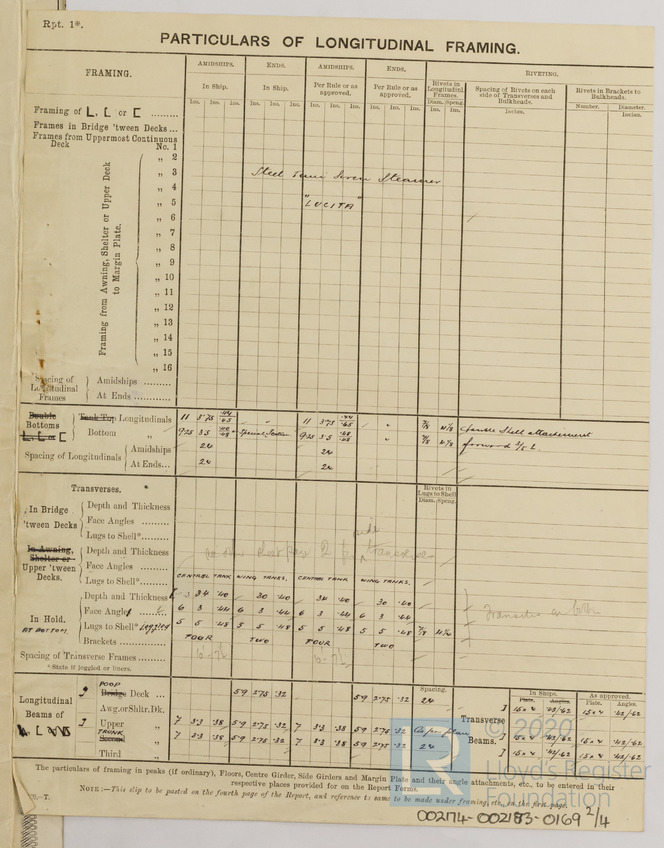 Rpt. 1*.
PARTICULARS OF LONGITUDINAL FRAMING.
FRAMING.
AMIDSHIPS. ENDS. AMIDSHIPS. ENDS. RIVETING.
In Ship. In Ship. Per Rule or as approved. Per Rule or as approved. Rivets in Longitudinal Frames. Spacing of Rivets on each side of Transverses and Bulkheads. Rivets in Brackets to Bulkheads.
Ins. Ins. Ins. Ins. Ins. Ins. Ins. Ins. Ins. Ins. Ins. Ins. Diam. Speng. Inches. Number. Diameter.
Ins. Ins. Inches.
Framing of L, [ or [ .........
Frames in Bridge 'tween Decks ...
Frames from Uppermost Continuous
Deck No. 1
Framing from Awning, Shelter or Upper Deck to Margin Plate.
„ 2
„ 3 Steel Twin Screw Steamer
„ 4
„ 5 "LUCITA"
„ 6
„ 7
„ 8
„ 9
„ 10
„ 11
„ 12
„ 13
„ 14
„ 15
„ 16
Spacing of Longitudinal Frames
Amidships .........
At Ends ............
Double Bottoms Tank Top Longitudinals 11 3.75 .44/.65 „ 11 3.75 .44/.65 „ 7/8 4 7/8 double shell attachment
L, [ or [ Bottom „ 9.25 3.5 .48 Special Section 9.25 3.5 .48 „ 7/8 4 7/8 forward 3/5 L.
Spacing of Longitudinals Amidships 24 24
At Ends... 24 24
Transverses.
Rivets in Lugs to Shell
Diam. Speng.
In Bridge 'tween Decks
Depth and Thickness
Face Angles .........
Lugs to Shell*.........
In Awning, Shelter or Upper 'tween Decks.
Depth and Thickness
Face Angles .........
Lugs to Shell*.........
CENTRAL TANK WING TANKS. CENTRAL TANK WING TANKS.
In Hold. AT BOTTOM.
Depth and Thickness 34 .40 30 .40 34 .40 30 .40
Face Angles 6 3 .44 6 3 .44 6 3 .44 6 3 .44
Lugs to Shell* joggled 5 5 .48 5 5 .48 5 5 .48 5 5 .48 7/8
Brackets ......... FOUR TWO FOUR TWO
Spacing of Transverse Frames .........
* State if joggled or liners.
Longitudinal Beams of
POOP
Bridge Deck ... 5.9 2.75 .32 5.9 2.75 .32
Spacing. 24
Awg. or Shltr. Dk.
Upper „ 7 3.3 .38 5.9 2.75 .32 7 3.3 .38 5.9 2.75 .32 As per plan
TRUNK
Second „ 7 3.3 .38 5.9 2.75 .32 7 3.3 .38 5.9 2.75 .32 24
Third „
Transverse Beams.
In Ships. As approved.
Plate. Angles. Plate. Angles.
15 x 4 .42/.62 15 x 4 .42/.62
15 x 4 .42/.62 15 x 4 .42/.62
15 x 4 .42/.62 15 x 4 .42/.62
The particulars of framing in peaks (if ordinary), Floors, Centre Girder, Side Girders and Margin Plate and their angle attachments, etc., to be entered in their
respective places provided for on the Report Forms.
NOTE:—This slip to be posted on the fourth page of the Report, and reference to same to be made under framing, etc., on the first page.
© 2020
Lloyd's Register
Foundation
002174-002183-0169 2/4